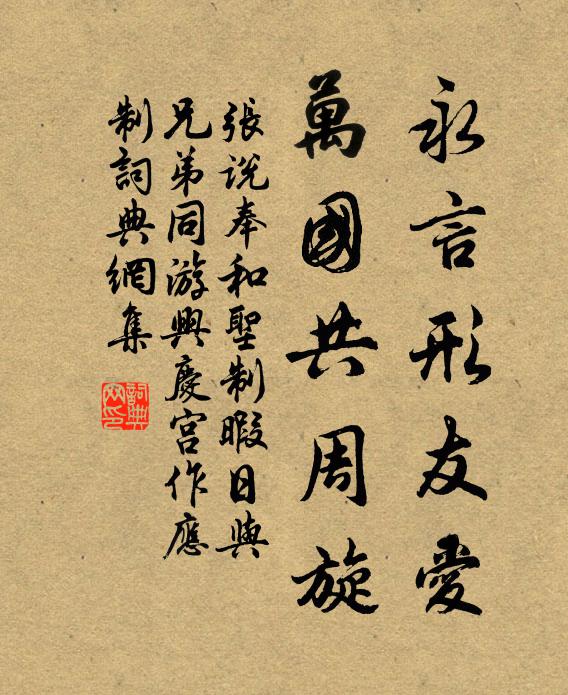 永言形友愛
萬國共周旋
張說奉和聖制暇日與
兄弟同游興慶宮作應
制詞典網集
詞典
网印